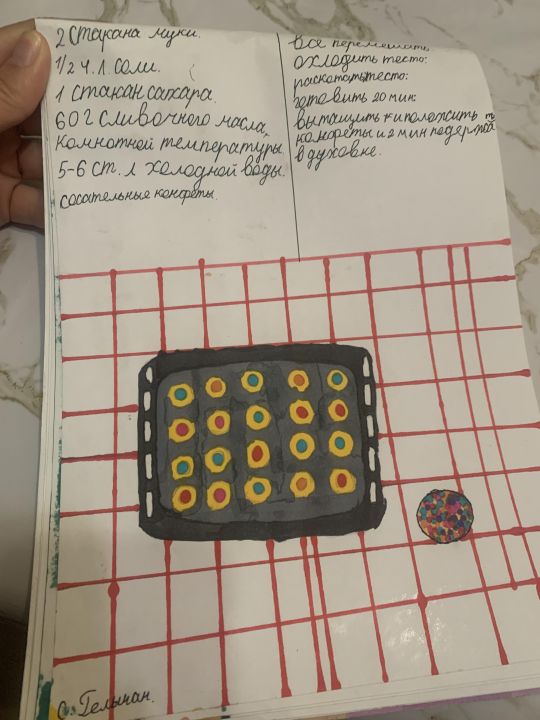 2 стакана муки.
1/2 ч.л. соли.
1 стакан сахара.
60 г сливочного масла,
комнотной температуры.
5-6 ст. л холодной воды.
сосательные конфеты.
все перемешать
охлодить тесто:
раскотать тесто:
готовить 20 мин:
вытащить и положить
конфеты и 2 мин подержать
в духовке.